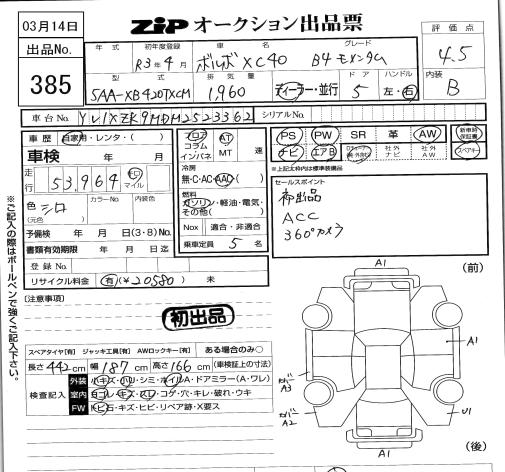 03月14日
ZIP オークション出品票
出品No.
385
年式 初年度登録 車名 グレード
R3年4月 ボルボ XC40 B4 モメンタム
型式 排気量 ドア ハンドル
5AA-XB420TXCM 1,960 ディーラー・並行 5 左・右
評価点
4.5
内装
B
車台No. YV1XZK9MDM2523362 シリアルNo.
車歴 自家用・レンタ・( )
車検 年 月
走行 53,964 km マイル
色 シロ (元色) カラーNo. 内装色
予備検 年 月 日(3・8)No.
書類有効期限 年 月 日迄
登録No.
リサイクル料金 有(¥20580) 未
フロア コラム インパネ AT MT 速
冷房
無・C・AC・AAC
燃料
ガソリン・軽油・電気・その他( )
Nox 適合・非適合
乗車定員 5 名
PS PW SR 革 AW 新車時保証書
ナビ エアB 社外ナビ 社外AW スペアキー
※上記太枠内は標準装備品
セールスポイント
初出品
ACC
360°カメラ
※ご記入の際はボールペンで強くご記入下さい。
(注意事項)
初出品
スペアタイヤ[有] ジャッキ工具[有] AWロックキー[有] ある場合のみ○
長さ442cm 幅187cm 高さ166cm (車検証上の寸法)
検査記入
外装 小キズ・凹・シミ・ホイルA・ドアミラー(A・ワレ)
室内 ヨゴレ・キズ・スレ・コゲ・穴・キレ・破れ・ウキ
FW トビ石・キズ・ヒビ・リペア跡・X要ス
(前)
A1
A1
カバ A3
カバ A2
U1
A1
(後)